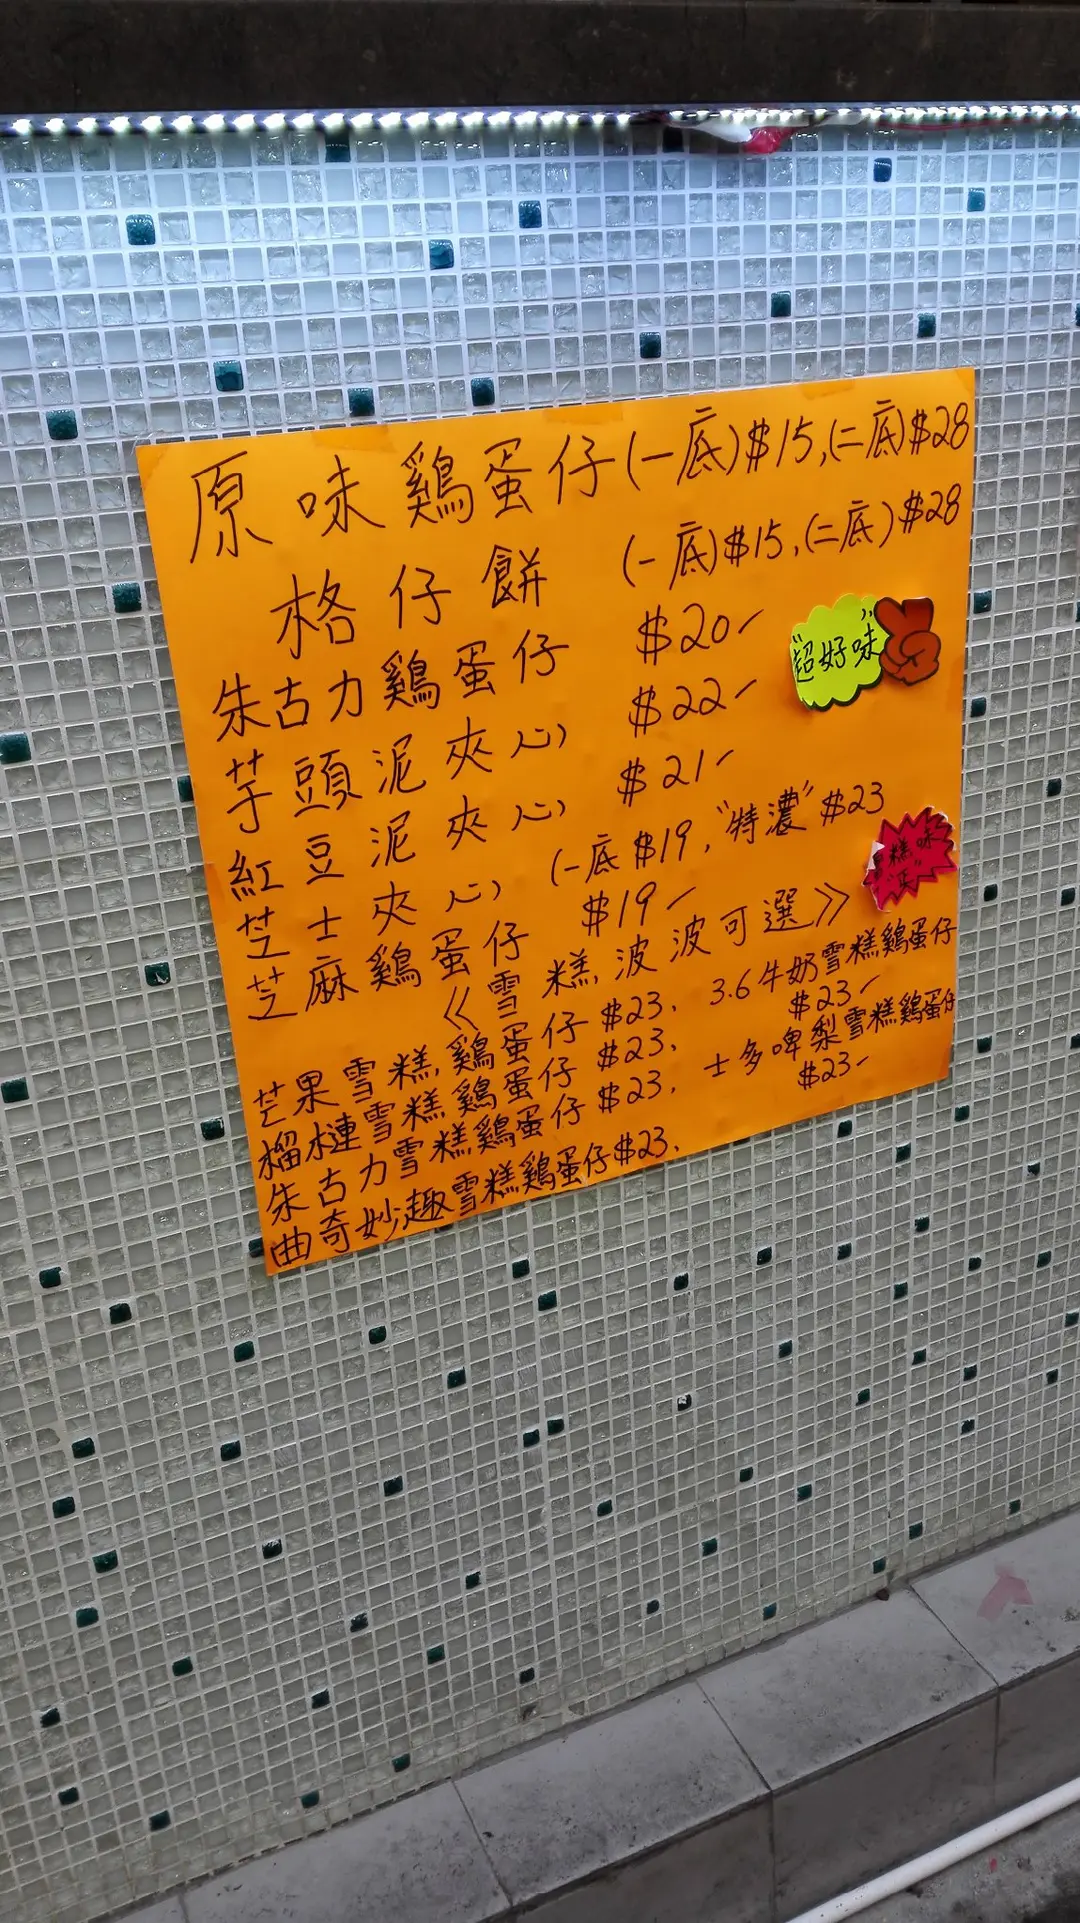 原味鷄蛋仔(一底)$15,(二底)$28
格仔餅 (一底)$15,(二底)$28
朱古力鷄蛋仔 $20
"超好味"
芋頭泥夾心 $22
紅豆泥夾心 $21
芝士夾心 (一底$19,"特濃"$23
芝麻鷄蛋仔 $19
《雪糕,波波可選》
芒果雪糕,鷄蛋仔$23、 3.6牛奶雪糕鷄蛋仔 $23
榴槤雪糕鷄蛋仔$23、
朱古力雪糕鷄蛋仔$23、 士多啤梨雪糕鷄蛋仔 $23
曲奇妙趣雪糕鷄蛋仔$23、